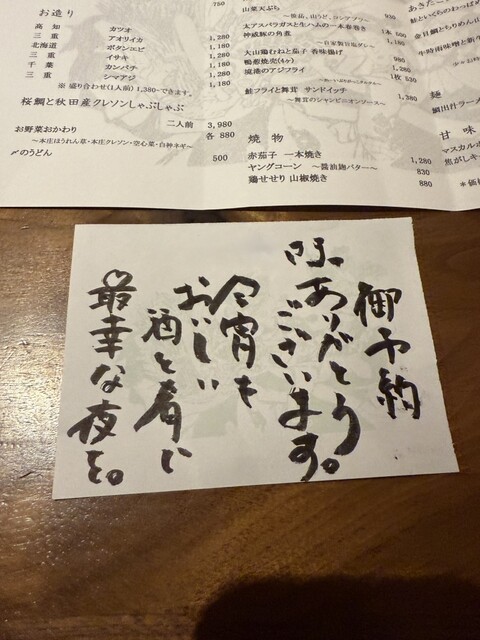 お造り
高知 カツオ
三重 アオリイカ 1,280
北海道 ボタンエビ 1,180
三重 イサキ 1,280
千葉 カンパチ 1,180
三重 シマアジ 1,180
※ 盛り合わせ(1人前) 1,380~できます。
桜鯛と秋田産クレソンしゃぶしゃぶ
二人前 3,980
お野菜おかわり 各 880
~本庄ほうれん草・本庄クレソン・空心菜・白神ネギ~
〆のうどん 500
750
山菜天ぷら 930
~世田、山うど、コシアブラ~
太アスパラガスと生ハムの一本春巻き 1本 500
神威豚の角煮 1,180
~自家製甘味グレ~
大山鶏むねと茄子 香味揚げ 980
鴨春焼売(4ヶ) 1,280
琉港のアジフライ 1枚 530
鮭フライと舞茸 サンドイッチ 1,380
~舞茸のシャンピニオンソース~
焼物
赤茄子 一本焼き 1,280
ヤングコーン ~醤油麹バター~ 830
鶏せせり 山椒焼き 880
鮭といくらのわっぱめ
金目鯛とちりめん山
牛時雨味噌と新生
麺
鯛出汁ラーメ
甘味
マスカルポ
焦がしキ
御予約
ありがとう
ございます。
今宵も
おいしい
酒と肴に
最幸な夜を。